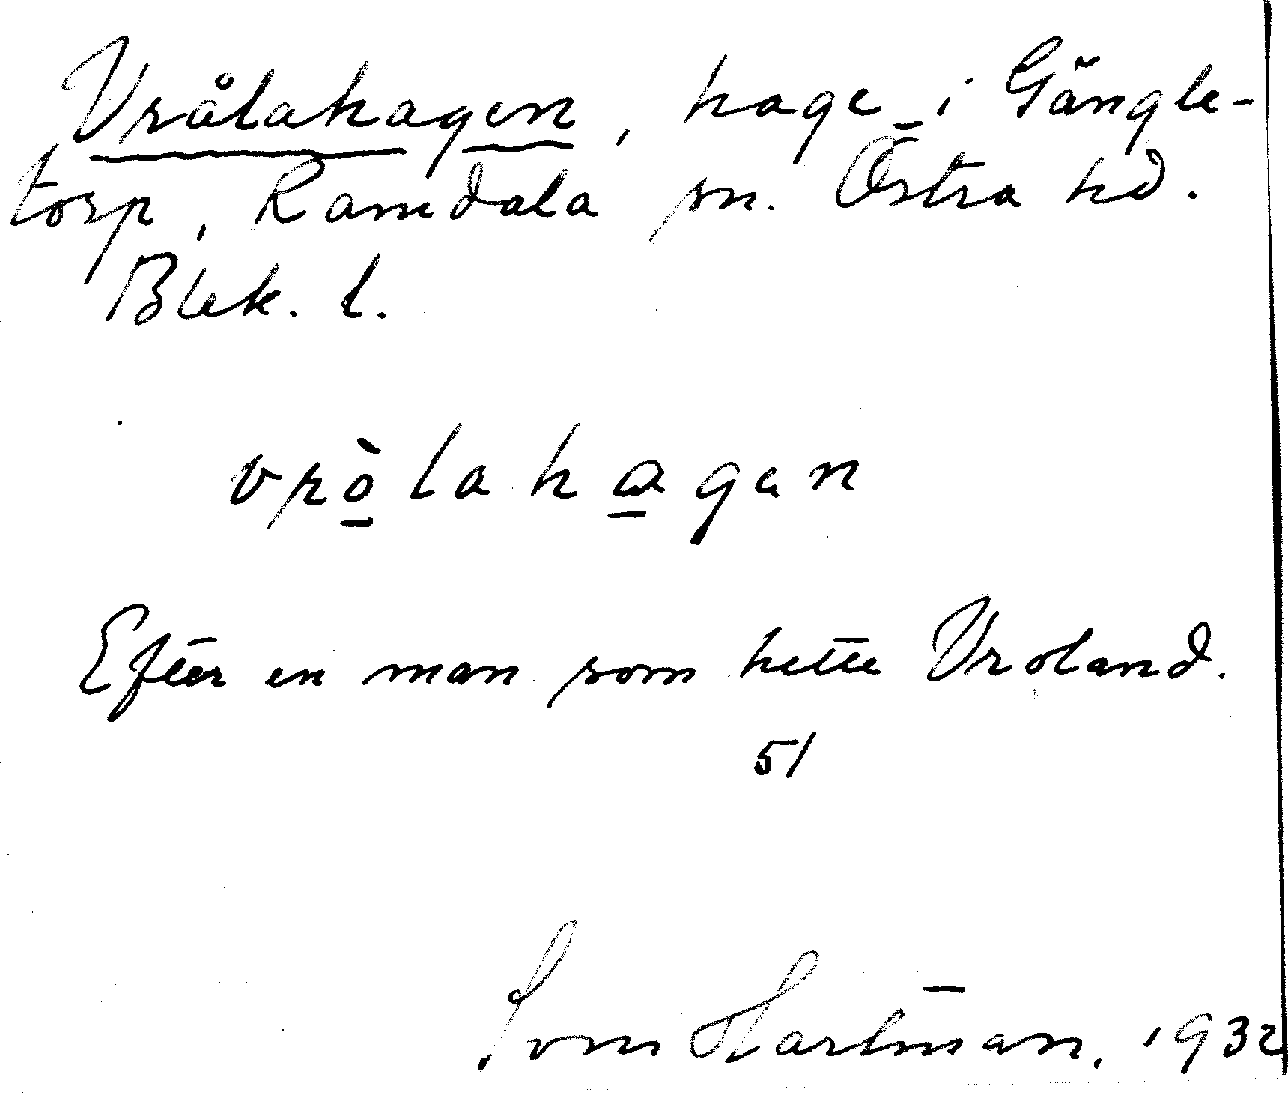 Vrålahagen, hage i Gängle-
torp, Ramdala sn. Östra hd.
Blek. l.
vròlahagen
Efter en man som hette Vroland.
51
Sven Hartman, 1932